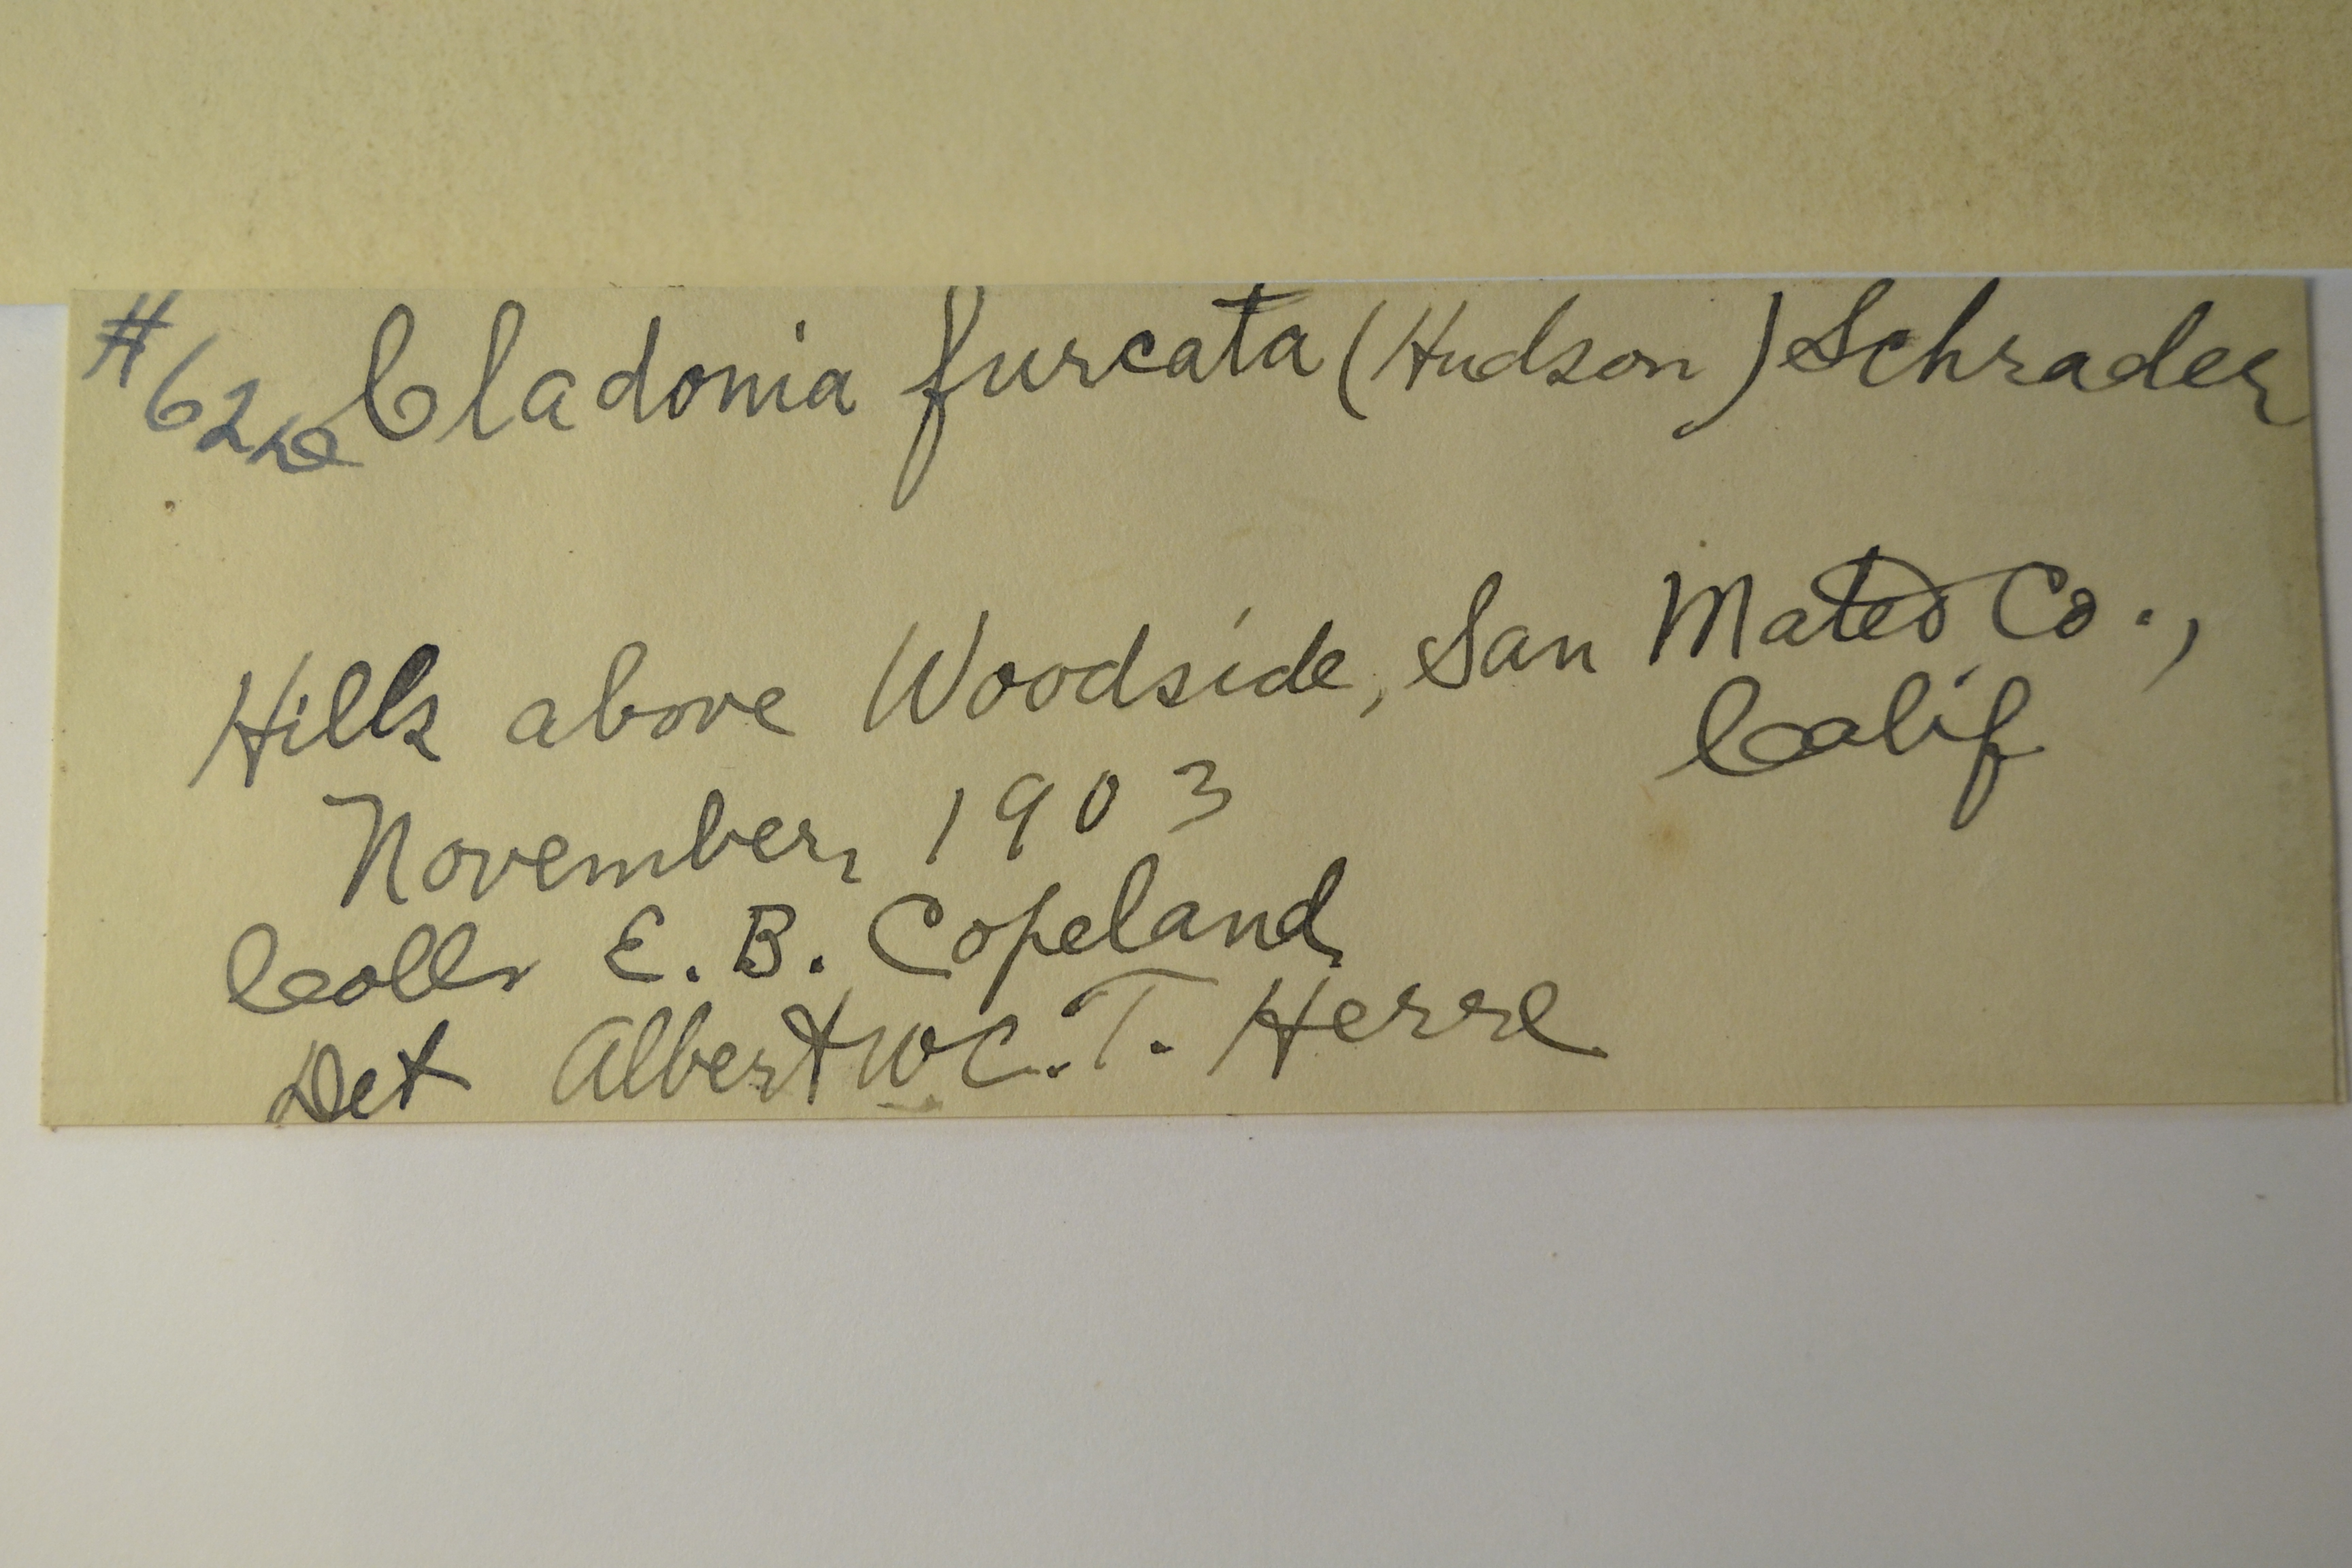 #622 Cladonia furcata (Hudson) Schrader
Hills above Woodside, San Mateo Co.,
Calif
November, 1903
Coll. E. B. Copeland
Det Albert W.C.T. Herre